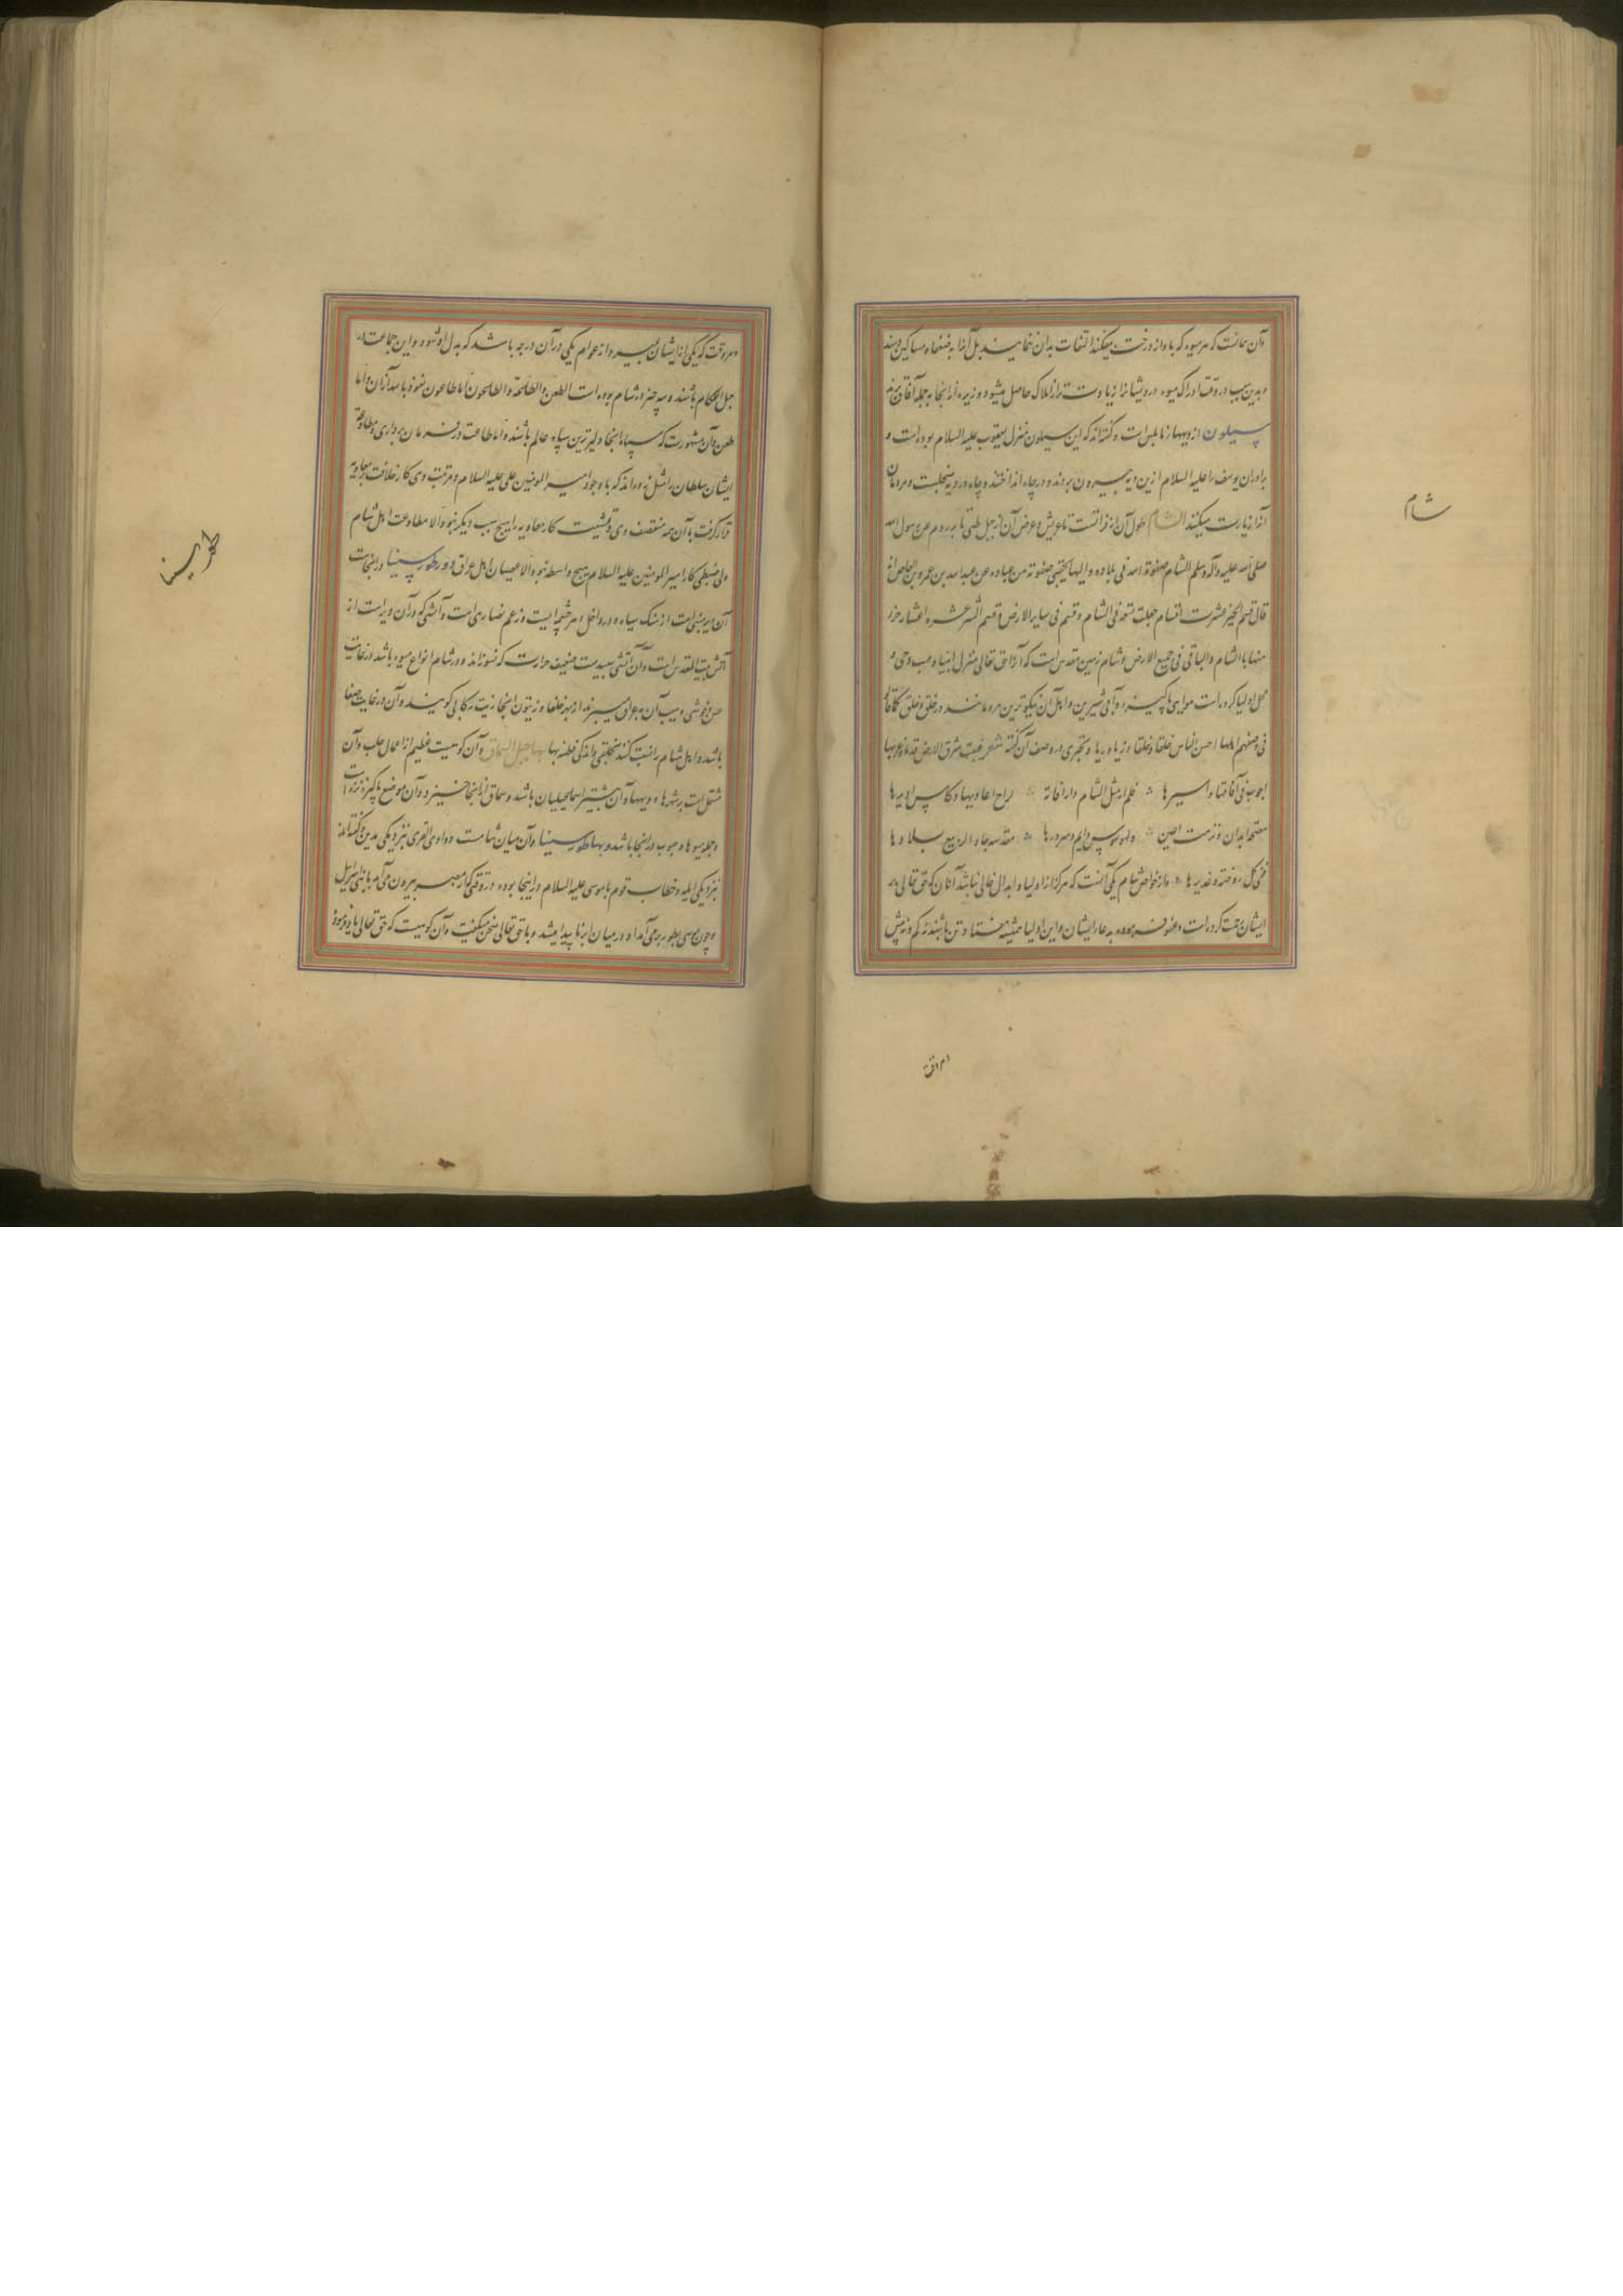 وآن چنانست که هر میوه که باد از درخت میفکند التفات بدان ننمایند بل آنرا به ضعفا و مساکین دهند
و بدین سبب در وقت ادراک میوه درویشانرا زیادت تر از املاک حاصل میشود و زیره از اینجا بجمله آفاق برند
سیلون از دیهها نابلس است و گفته‌اند که این سیلون منزل یعقوب علیه السلام بوده است و
برادران یوسف را علیه السلام ازین دیه بیرون بردند و در چاه انداختند و چاه در دیه سنجلست و مردمان
آنرا زیارت میکنند الشام طول آن از فراتست تا عریش و عرض آن از جبل طی تا بحر روم عن رسول الله
صلی الله علیه وآله وسلم الشام صفوة الله فی بلاده والیها یجتبی صفوته من عباده عن عبدالله بن عمرو بن العاص انه
قال قسم الخیر عشرت اقسام جعلت تسعة فی الشام و قسم فی سایر الارض و قسم الشر عشره اعشار جزء
منها بالشام والباقی فی جمیع الارض و شام زمین مقدس است که آنرا حق تعالی منزل انبیا و مهبط وحی و
محل اولیا کرده است هوای پاکیزه و آبی شیرین و اهل آن نیکوترین مردمانند در خلق و خلق
فی وصفهم اهلها احسن الناس خلقا و خلقا و زیا و ریا و بحتری در وصف آن گفته شعر
اجوب فی آفاقها و اسیرها فلم ار مثل الشام دار اقامة لراح اغادیها و کاس ادیرها
مصحة ابدان و نزهت اعین و لهو نفوس دایم و سرورها مقدسه جاد الربیع بلادها
ففی کل روضته و غدیرها و از خواص شام یکی آنست که هرگز از اولیا و ابدال خالی نباشد آنان که حق تعالی بر
ایشان رحمت کرده است و عفو فرموده به دعا ایشان و این اولیا همیشه هفتاد تن باشند نه کم و نه بیش
شام
هروقت که یکی از ایشان بمیرد از عوام یکی در آن درجه باشد که بدل او شود و این جماعت در
جبل اللکام باشند و سه چیز در شام بوده است الطعن و الطاعة والطاعون اما طاعون نعوذ بالله از آن و اما
طعن و آن مشهورست که سپاه اینجا دلیرترین سپاه عالم باشند و اما طاعت در فرمان برداری و مطاوعت
ایشان سلطان را مثل زده‌اند که با وجود امیر المومنین علی علیه السلام و مرتبت وی کار خلافت بر معاویه
قرار گرفت با آن همه منقصت وی و تمشیت کار معاویه را هیچ سبب دیگر نبود الا مطاوعت اهل شام
ولی ضبطی کار امیر المومنین علیه السلام هیچ واسطه نبود الا عصیان اهل عراق و دیر طور سینا در اینجاست
آن دیر مبنی است از سنگ سیاه و در داخل او سرچشمه‌ایست و زعم نصاری است و آتشی که در آن دیر است از
آتش بیت المقدس است و آن آتشی سپیدست ضعیف حرارت که نسوزاند و در شام انواع میوه باشد در غایت
حسن و خوشی و سیب آن به عراق میبرند از بهر خلفا و زیتون اینجا زیت رکابی گویند و آن در غایت صفا
باشد و اهل شام را نسبت کنند بجلفی و اندکی فطنه بها جبل السماق و آن کوهیست عظیم از اعمال حلب و آن
مشتمل است بر شهرها و دیهها و آن بیشتر اسماعیلیان باشد و سماق از اینجا خیزد و آن موضع پاکیزه و نزه است
و جمله میوها و حبوب در اینجا باشد و بها طور سینا و آن میان شامست و وادی القری بنزدیکی مدین و گفته‌اند
بنزدیکی ایله و خطاب قوم با موسی علیه السلام در اینجا بوده در وقتی که از مصر بیرون می‌آمد با بنی اسرائیل
و چون موسی بطور برمی‌آمد ابر در میان ابر ناپیدا میشد و با حق تعالی سخن میگفت و آن کوهیست که حق تعالی یاد فرموده
طور سینا